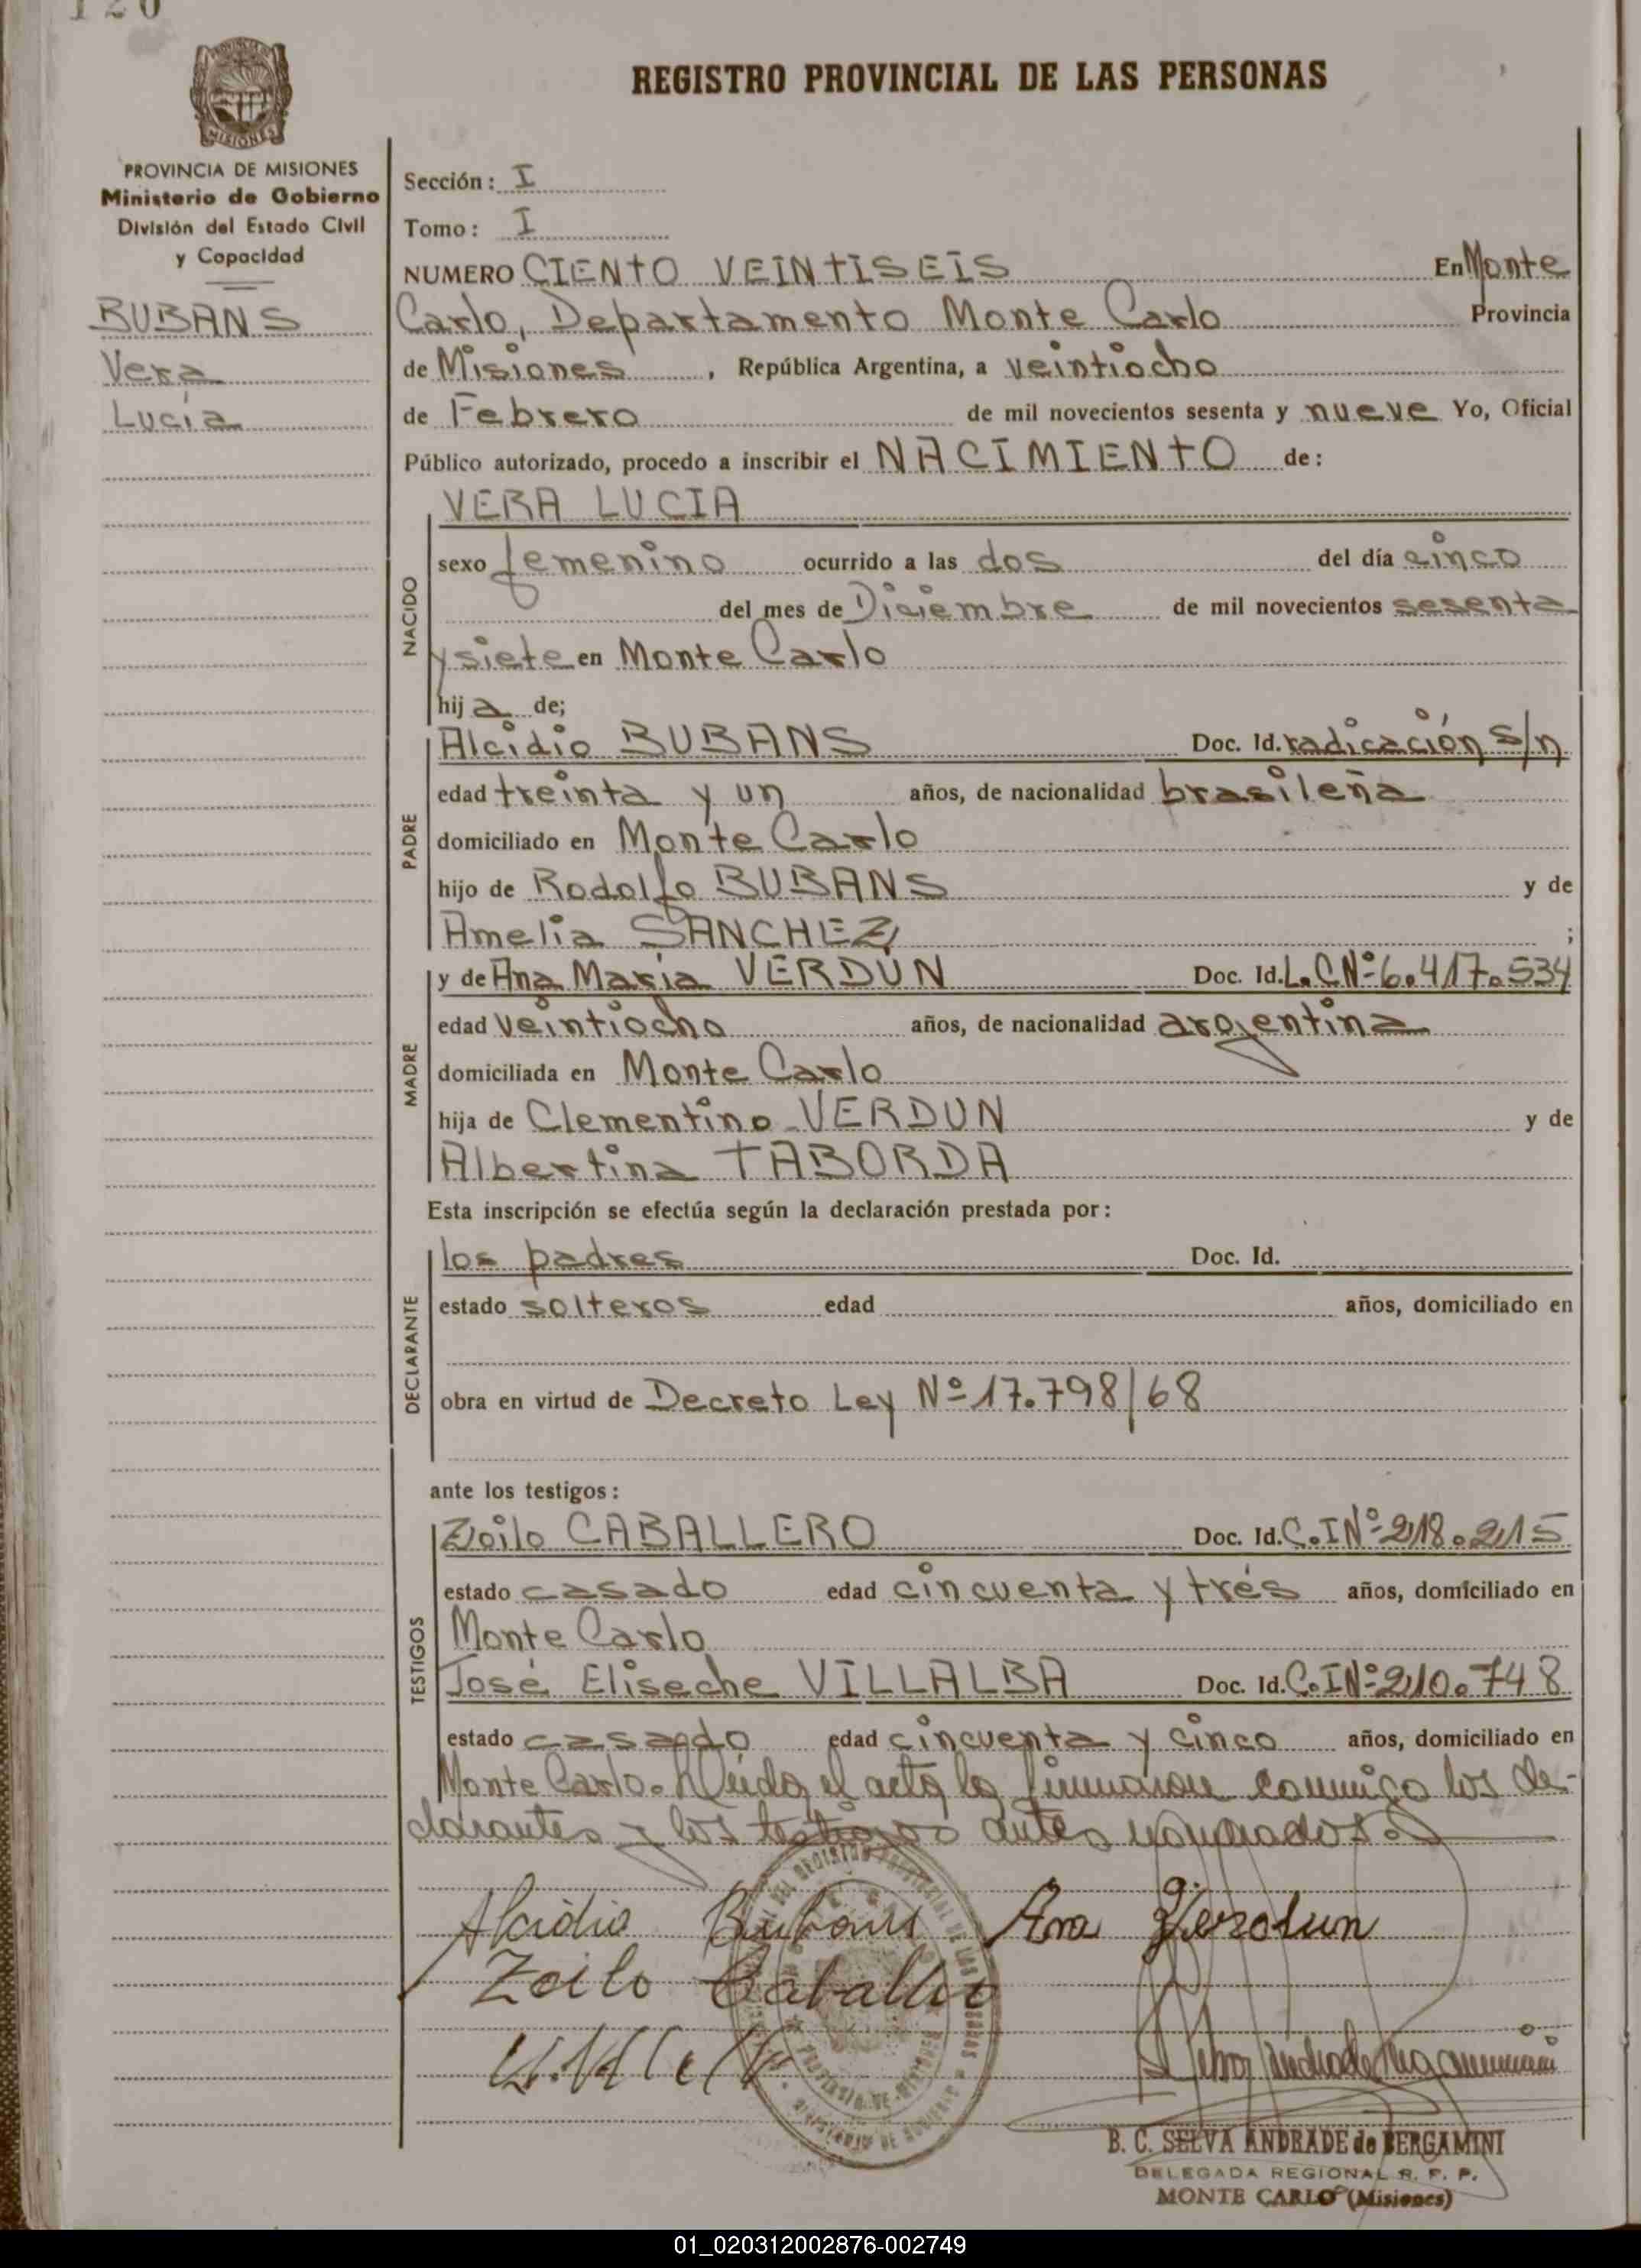 REGISTRO PROVINCIAL DE LAS PERSONAS
MISIONES
PROVINCIA DE MISIONES
Ministerio de Gobierno
División del Estado Civil
y Capacidad
BUBANS
Vera
Lucía
Sección: I
Tomo: I
NUMERO CIENTO VEINTISEIS En Monte
Carlo, Departamento Monte Carlo Provincia
de Misiones, República Argentina, a veintiocho
de Febrero de mil novecientos sesenta y nueve Yo, Oficial
Público autorizado, procedo a inscribir el NACIMIENTO de:
NACIDO
VERA LUCIA
sexo femenino ocurrido a las dos del día cinco
del mes de Diciembre de mil novecientos sesenta
y siete en Monte Carlo
hija de;
PADRE
Alcidio BUBANS Doc. Id. radicación s/n
edad treinta y un años, de nacionalidad brasileña
domiciliado en Monte Carlo
hijo de Rodolfo BUBANS y de
Amelia SANCHEZ ;
MADRE
y de Ana María VERDÚN Doc. Id. L.C Nº 6.417.534
edad veintiocho años, de nacionalidad argentina
domiciliada en Monte Carlo
hija de Clementino VERDUN y de
Albertina TABORDA
Esta inscripción se efectúa según la declaración prestada por:
DECLARANTE
los padres Doc. Id.
estado solteros edad años, domiciliado en
obra en virtud de Decreto Ley Nº 17.798/68
ante los testigos:
TESTIGOS
Zoilo CABALLERO Doc. Id. C.I Nº 218.215
estado casado edad cincuenta y trés años, domiciliado en
Monte Carlo
José Eliseche VILLALBA Doc. Id. C.I Nº 210.748
estado casado edad cincuenta y cinco años, domiciliado en
Monte Carlo. Leida el acta la firmaron conmigo los de-
clarantes y los testigos antes nombrados.
Alcidio Bubans Ana Verdun
Zoilo Caballero
B. C. SELVA ANDRADE de BERGAMINI
DELEGADA REGIONAL R. P. P.
MONTE CARLO (Misiones)
01_020312002876-002749